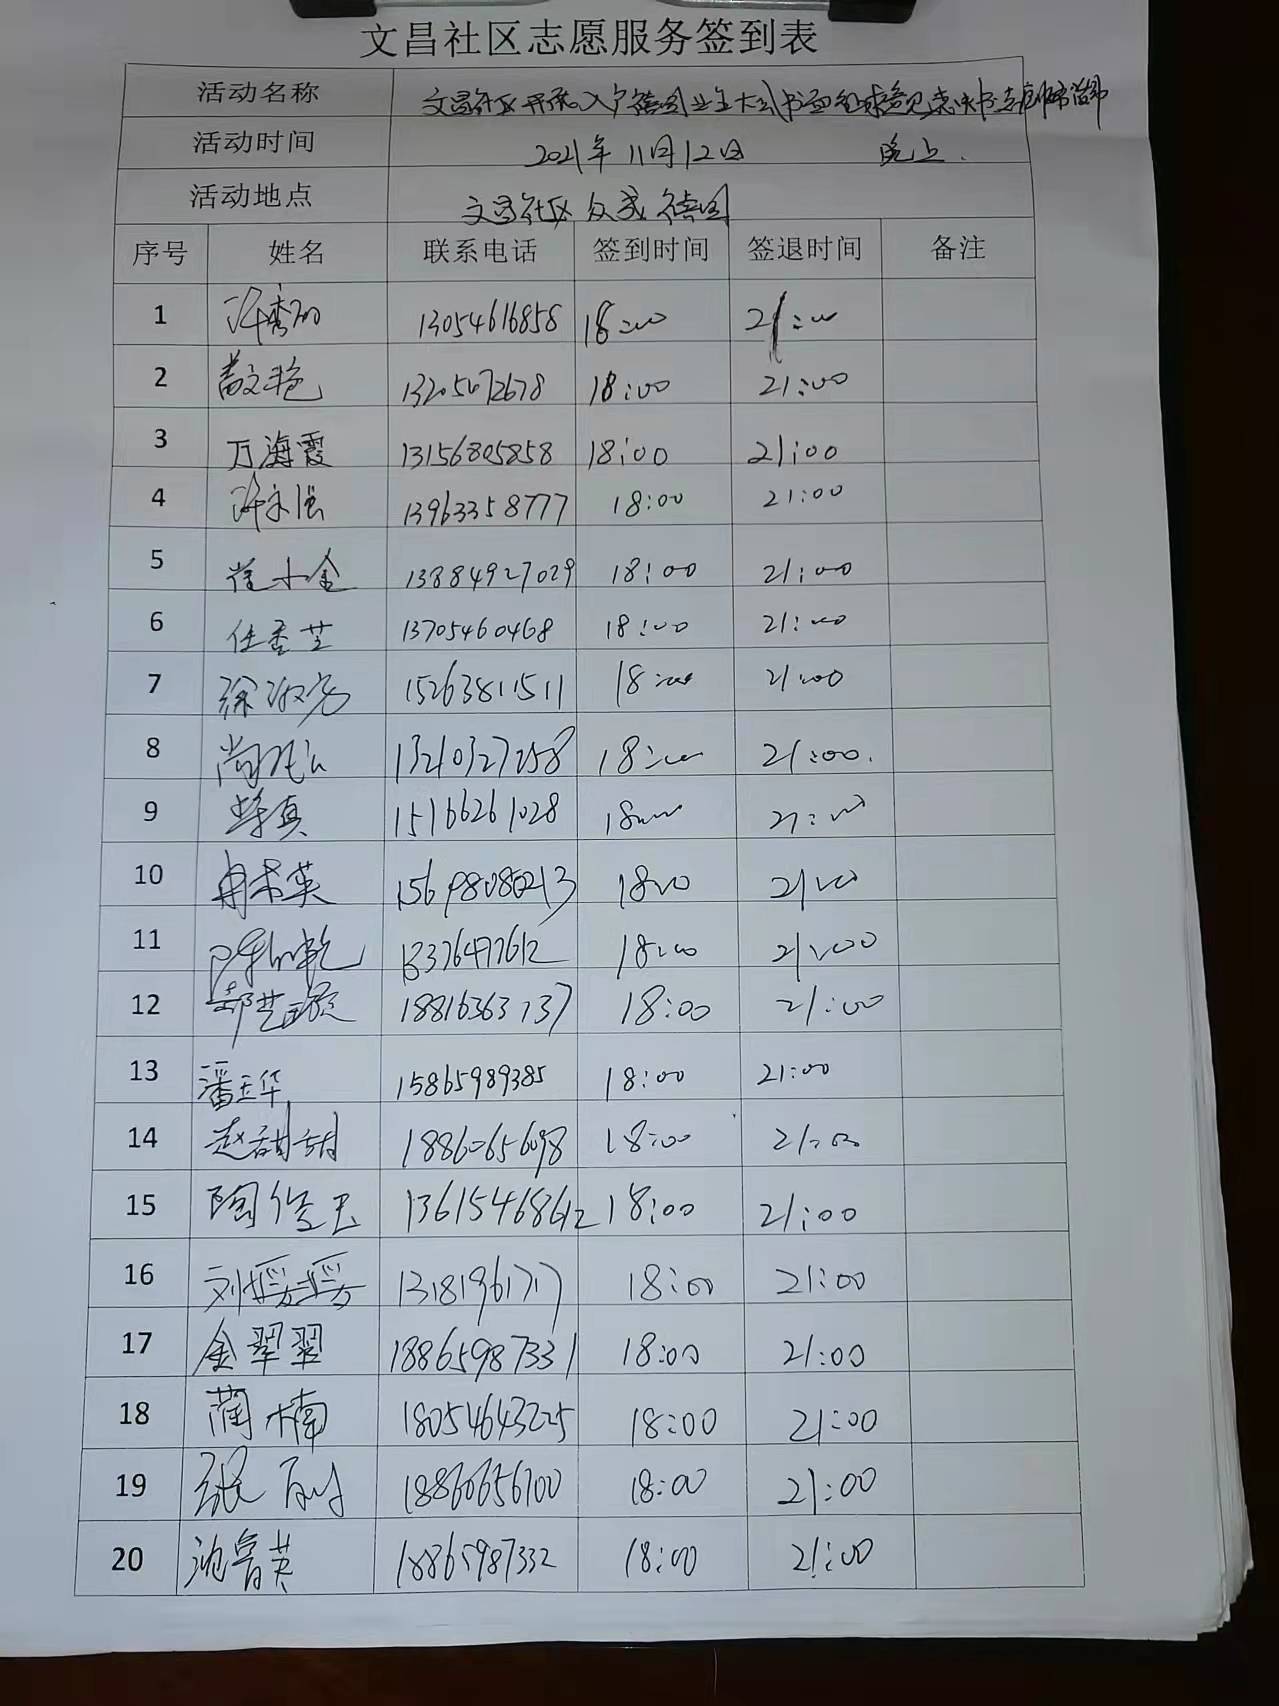 文昌社区志愿服务签到表
活动名称 文昌社区开展入户德国业主大会书面征求意见表决书志愿服务活动
活动时间 2021年11月12日 晚上.
活动地点 文昌社区众成德国
序号 姓名 联系电话 签到时间 签退时间 备注
1 13054616858 18:00 21:00
2 13205472678 18:00 21:00
3 万海霞 13156805858 18:00 21:00
4 许永强 13963358777 18:00 21:00
5 崔小金 13884927029 18:00 21:00
6 任香芝 13705460468 18:00 21:00
7 徐淑亮 15263811511 18:00 21:00
8 13210327258 18:00 21:00.
9 李真 15166261028 18:00 21:00
10 冉书英 15698080213 18:00 21:00
11 13376477612 18:00 21:00
12 郭艺璇 18816363737 18:00 21:00
13 潘玉华 15865989385 18:00 21:00
14 赵甜甜 18860656098 18:00 21:00
15 陶俊玉 13615468612 18:00 21:00
16 刘媛媛 13181961717 18:00 21:00
17 金翠翠 18865987331 18:00 21:00
18 蔺楠 18054643225 18:00 21:00
19 张 18860656700 18:00 21:00
20 沈鲁英 18865987332 18:00 21:00